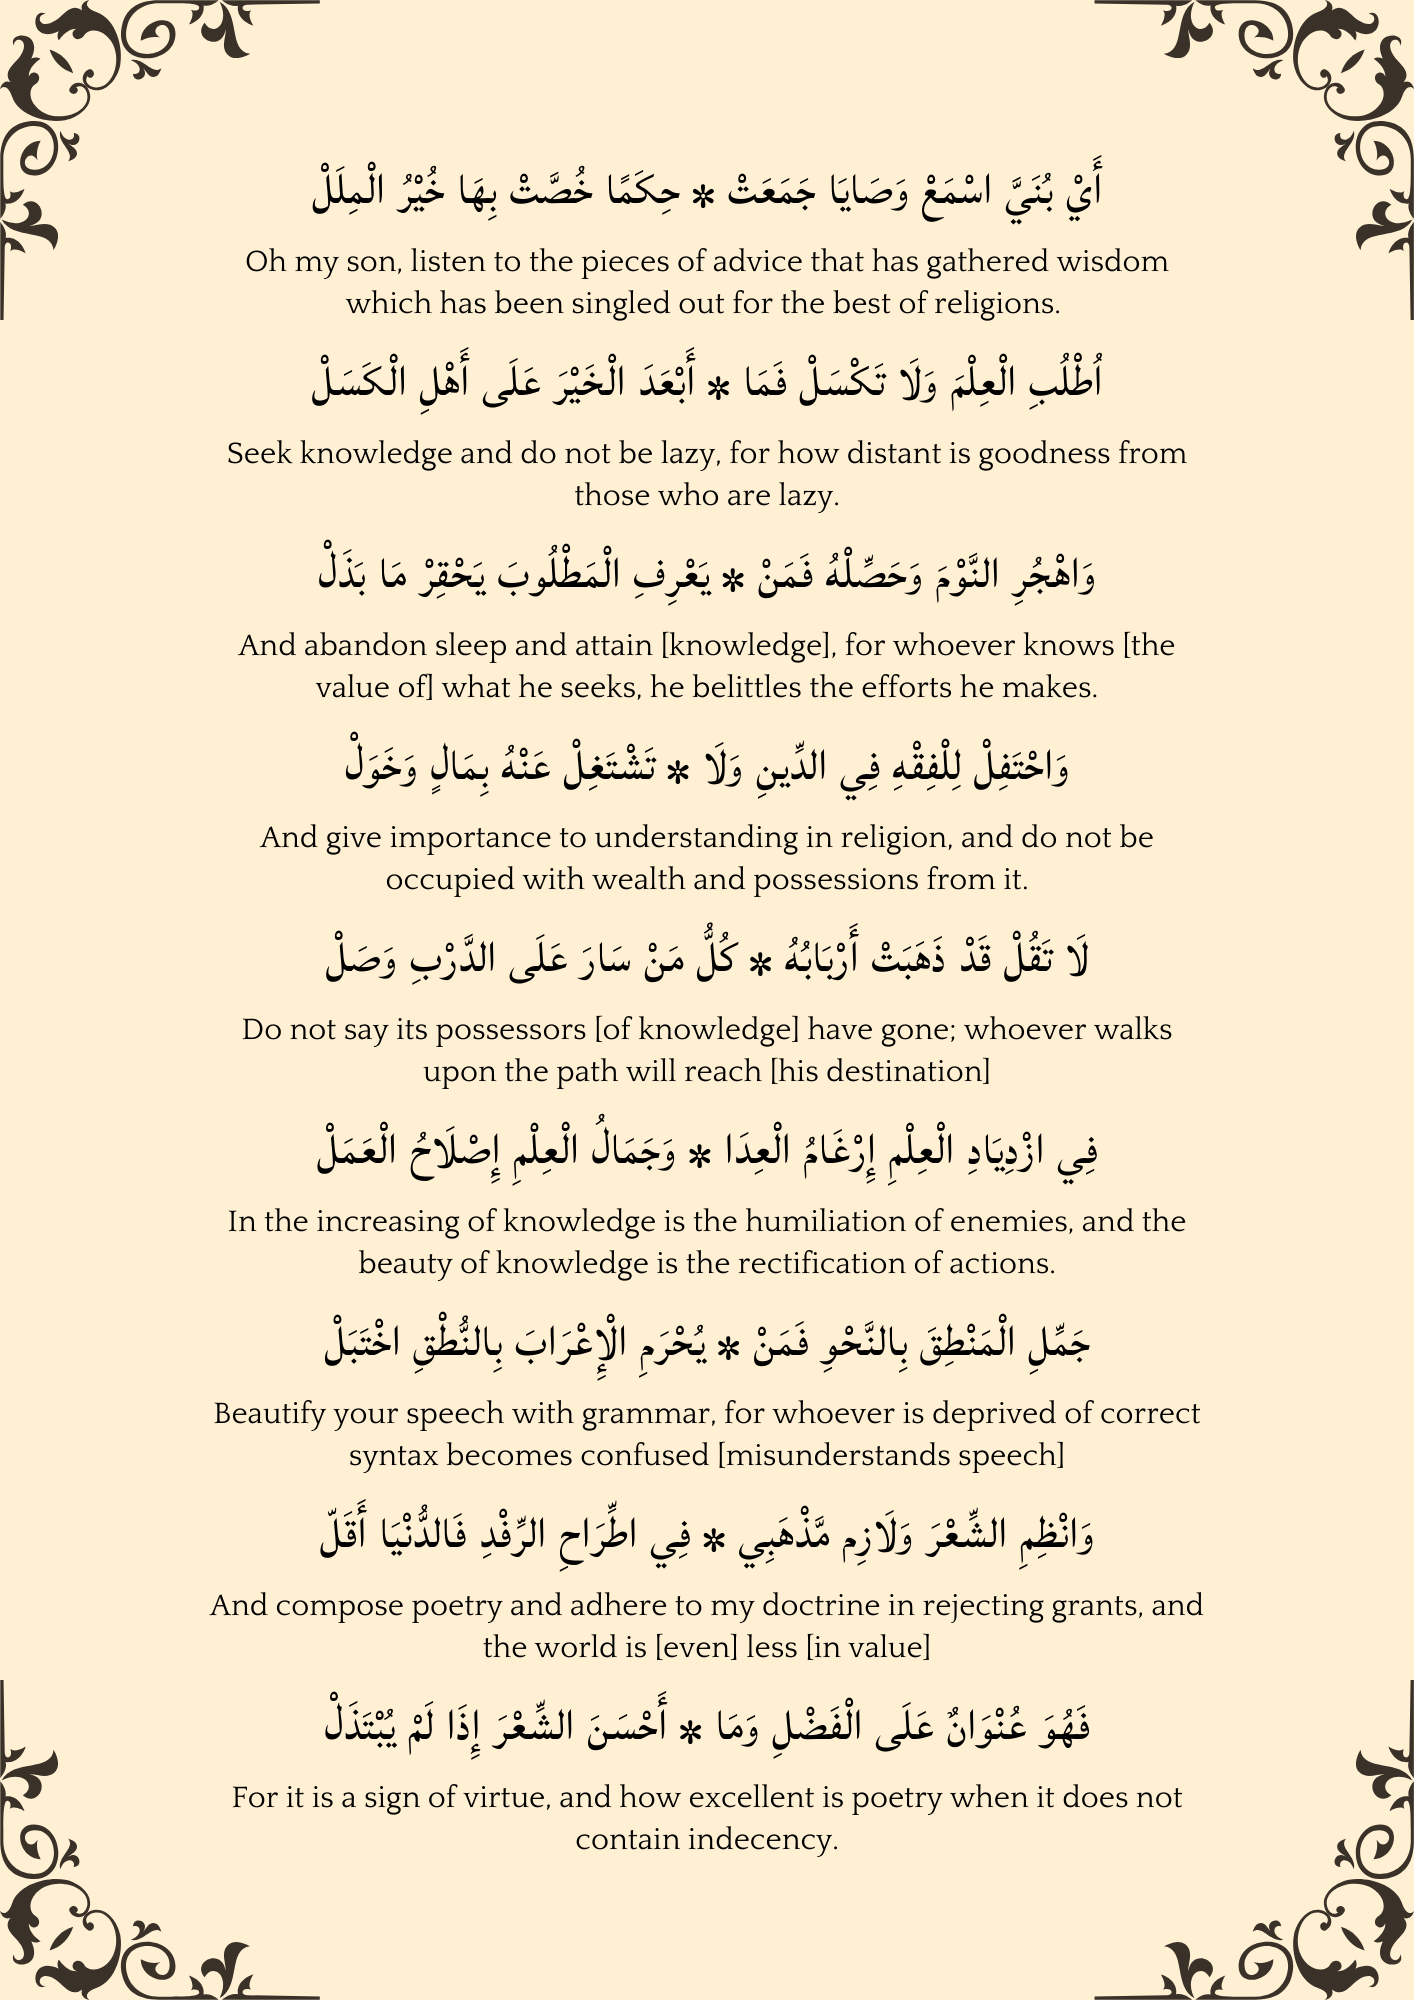 أَيْ بُنَيَّ اسْمَعْ وَصَايَا جَمَعَتْ * حِكَمًا خُصَّتْ بِهَا خُيْرُ الْمِلَلْ
Oh my son, listen to the pieces of advice that has gathered wisdom
which has been singled out for the best of religions.
اُطْلُبِ الْعِلْمَ وَلَا تَكْسَلْ فَمَا * أَبْعَدَ الْخَيْرَ عَلَى أَهْلِ الْكَسَلْ
Seek knowledge and do not be lazy, for how distant is goodness from
those who are lazy.
وَاهْجُرِ النَّوْمَ وَحَصِّلْهُ فَمَنْ * يَعْرِفِ الْمَطْلُوبَ يَحْقِرْ مَا بَذَلْ
And abandon sleep and attain [knowledge], for whoever knows [the
value of] what he seeks, he belittles the efforts he makes.
وَاحْتَفِلْ لِلْفِقْهِ فِي الدِّينِ وَلَا * تَشْتَغِلْ عَنْهُ بِمَالٍ وَخَوَلْ
And give importance to understanding in religion, and do not be
occupied with wealth and possessions from it.
لَا تَقُلْ قَدْ ذَهَبَتْ أَرْبَابُهُ * كُلُّ مَنْ سَارَ عَلَى الدَّرْبِ وَصَلْ
Do not say its possessors [of knowledge] have gone; whoever walks
upon the path will reach [his destination]
فِي ازْدِيَادِ الْعِلْمِ إِرْغَامُ الْعِدَا * وَجَمَالُ الْعِلْمِ إِصْلَاحُ الْعَمَلْ
In the increasing of knowledge is the humiliation of enemies, and the
beauty of knowledge is the rectification of actions.
جَمِّلِ الْمَنْطِقَ بِالنَّحْوِ فَمَنْ * يُحْرَمِ الْإِعْرَابَ بِالنُّطْقِ اخْتَبَلْ
Beautify your speech with grammar, for whoever is deprived of correct
syntax becomes confused [misunderstands speech]
وَانْظِمِ الشِّعْرَ وَلَازِم مَّذْهَبِي * فِي اطِّرَاحِ الرِّفْدِ فَالدُّنْيَا أَقَلّ
And compose poetry and adhere to my doctrine in rejecting grants, and
the world is [even] less [in value]
فَهُوَ عُنْوَانٌ عَلَى الْفَضْلِ وَمَا * أَحْسَنَ الشِّعْرَ إِذَا لَمْ يُبْتَذَلْ
For it is a sign of virtue, and how excellent is poetry when it does not
contain indecency.